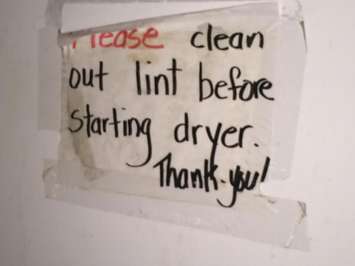 Please clean
out lint before
starting dryer.
Thank-you!